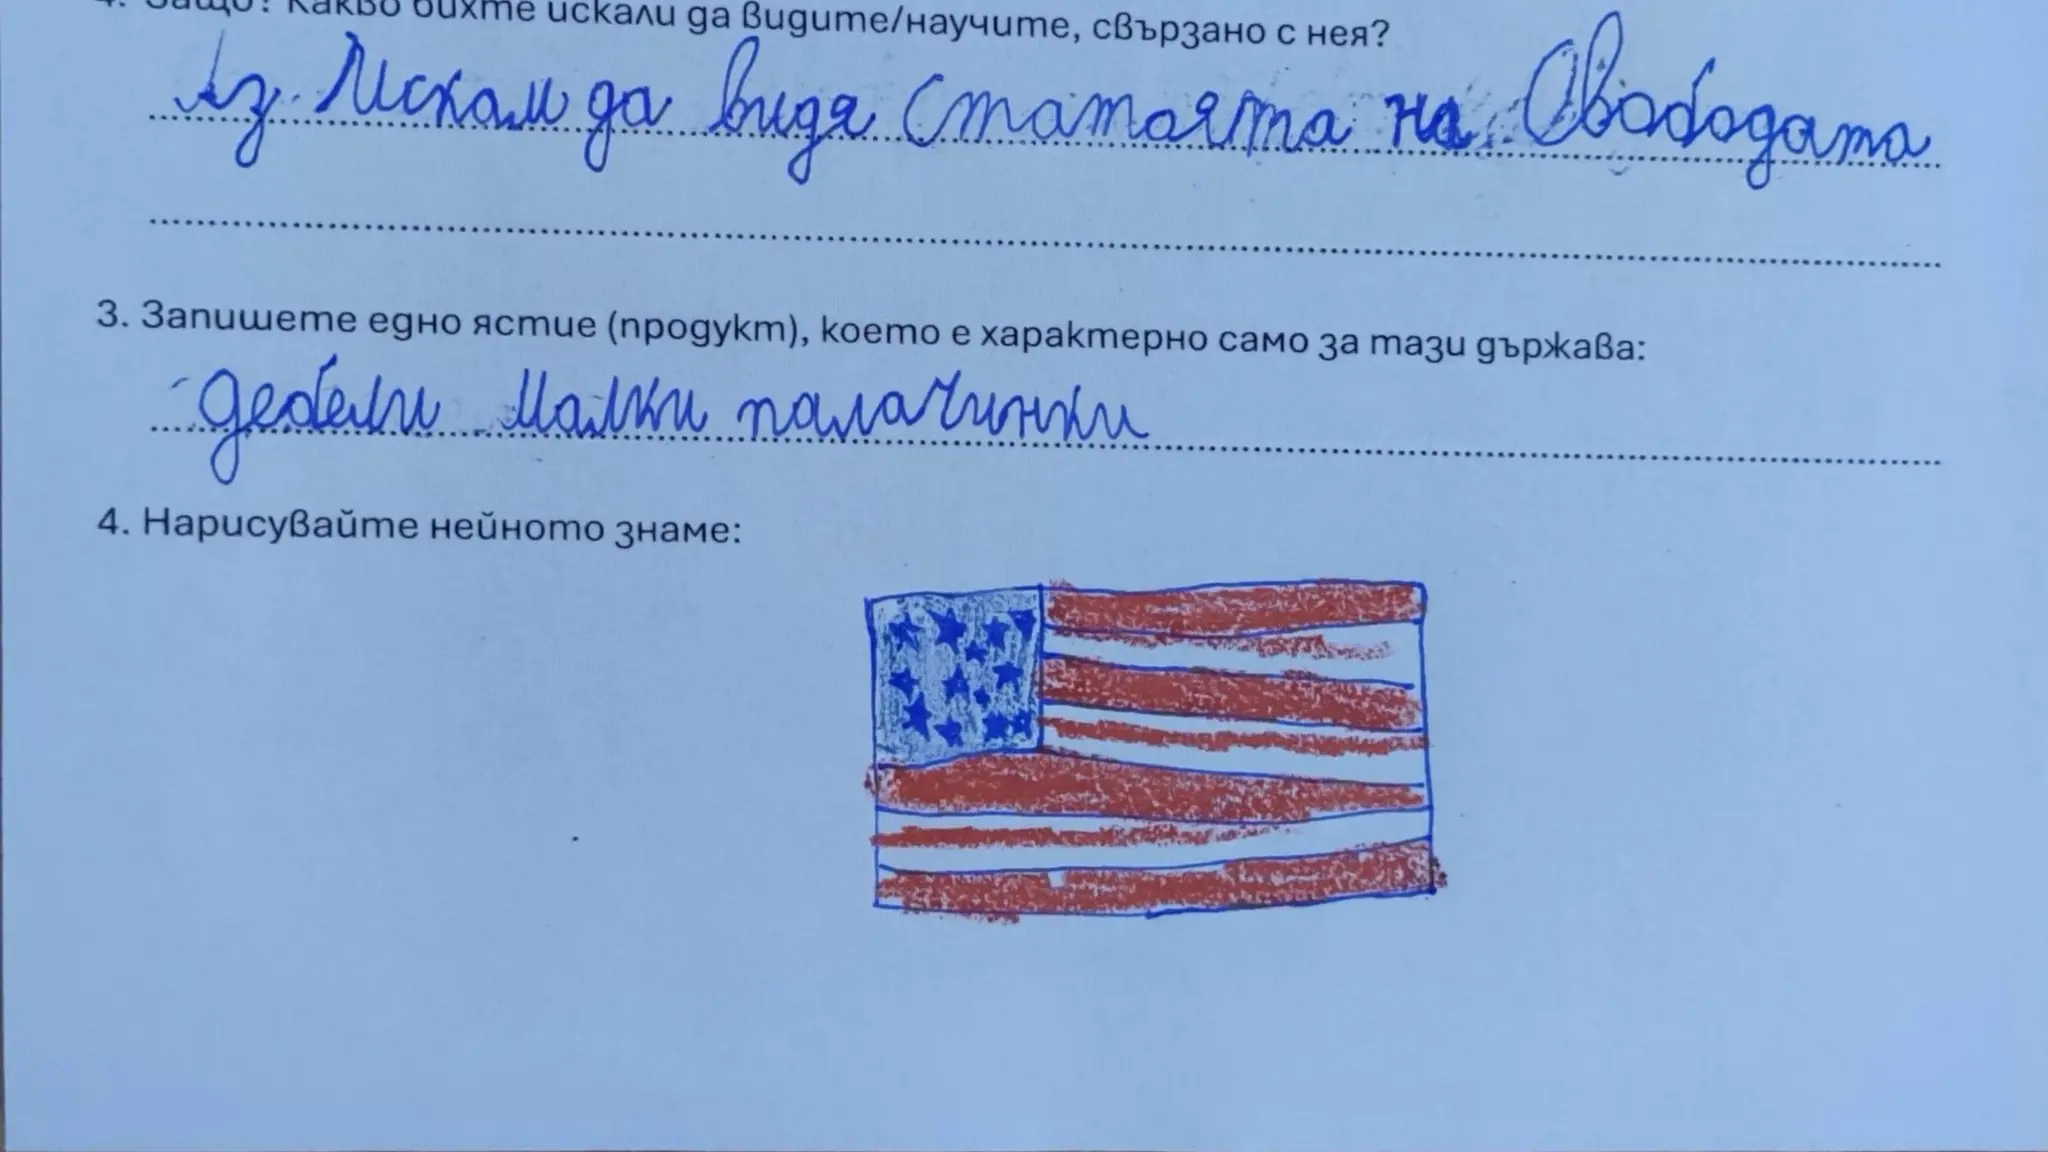 Защо? Какво бихте искали да видите/научите, свързано с нея?
Аз Искам да видя Статоята на Свободата
3. Запишете едно ястие (продукт), което е характерно само за тази държава:
дебели малки палачинки
4. Нарисувайте нейното знаме: